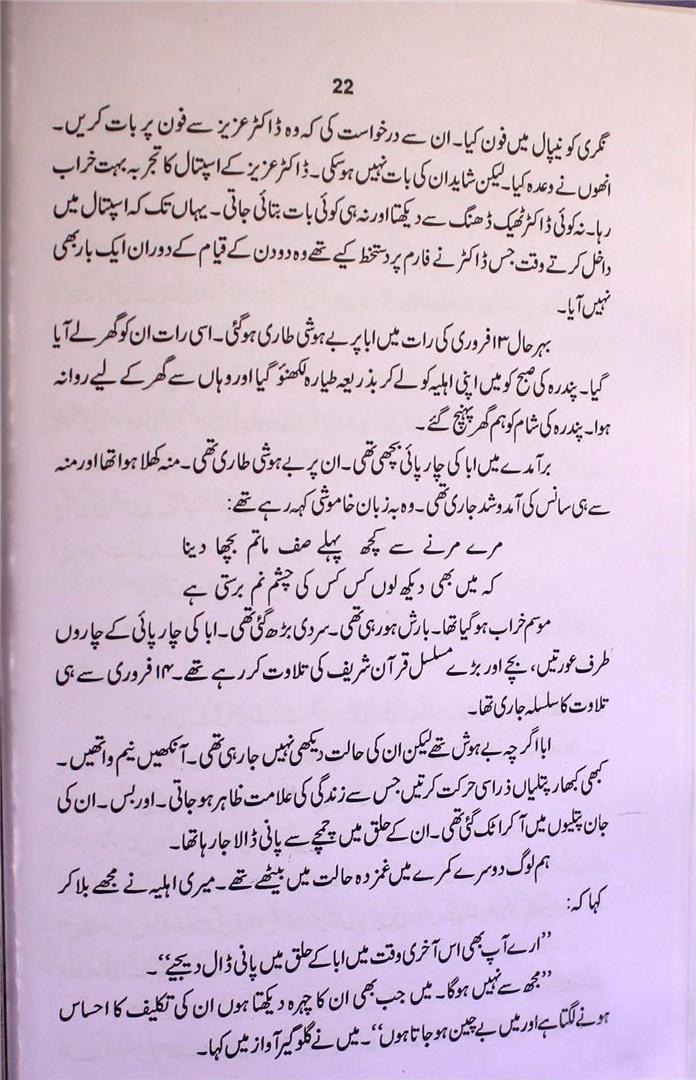 22
نگری کو نیپال میں فون کیا۔ ان سے درخواست کی کہ وہ ڈاکٹر عزیز سے فون پر بات کریں۔
انھوں نے وعدہ کیا۔ لیکن شاید ان کی بات نہیں ہو سکی۔ ڈاکٹر عزیز کے اسپتال کا تجربہ بہت خراب
رہا۔ نہ کوئی ڈاکٹر ٹھیک ڈھنگ سے دیکھتا اور نہ ہی کوئی بات بتائی جاتی۔ یہاں تک کہ اسپتال میں
داخل کرتے وقت جس ڈاکٹر نے فارم پر دستخط کیے تھے وہ دو دن کے قیام کے دوران ایک بار بھی
نہیں آیا۔
بہر حال ۱۳ فروری کی رات میں ابا پر بے ہوشی طاری ہو گئی۔ اسی رات ان کو گھر لے آیا
گیا۔ پندرہ کی صبح کو میں اپنی اہلیہ کو لے کر بذریعہ طیارہ لکھنؤ گیا اور وہاں سے گھر کے لیے روانہ
ہوا۔ پندرہ کی شام کو ہم گھر پہنچ گئے۔
برآمدے میں ابا کی چارپائی بچھی تھی۔ ان پر بے ہوشی طاری تھی۔ منہ کھلا ہوا تھا اور منہ
سے ہی سانس کی آمد و شد جاری تھی۔ وہ بہ زبان خاموشی کہہ رہے تھے:
مرے مرنے سے کچھ پہلے صف ماتم بچھا دینا
کہ میں بھی دیکھ لوں کس کس کی چشم نم برستی ہے
موسم خراب ہو گیا تھا۔ بارش ہو رہی تھی۔ سردی بڑھ گئی تھی۔ ابا کی چارپائی کے چاروں
طرف عورتیں، بچے اور بڑے مسلسل قرآن شریف کی تلاوت کر رہے تھے۔ ۱۴ فروری سے ہی
تلاوت کا سلسلہ جاری تھا۔
ابا اگرچہ بے ہوش تھے لیکن ان کی حالت دیکھی نہیں جا رہی تھی۔ آنکھیں نیم وا تھیں۔
کبھی کبھار پتلیاں ذرا سی حرکت کرتیں جس سے زندگی کی علامت ظاہر ہو جاتی۔ اور بس۔ ان کی
جان پتلیوں میں آ کر اٹک گئی تھی۔ ان کے حلق میں چمچے سے پانی ڈالا جا رہا تھا۔
ہم لوگ دوسرے کمرے میں غمزدہ حالت میں بیٹھے تھے۔ میری اہلیہ نے مجھے بلا کر
کہا کہ:
”ارے آپ بھی اس آخری وقت میں ابا کے حلق میں پانی ڈال دیجیے“۔
”مجھ سے نہیں ہوگا۔ میں جب بھی ان کا چہرہ دیکھتا ہوں ان کی تکلیف کا احساس
ہونے لگتا ہے اور میں بے چین ہو جاتا ہوں“۔ میں نے گلوگیر آواز میں کہا۔